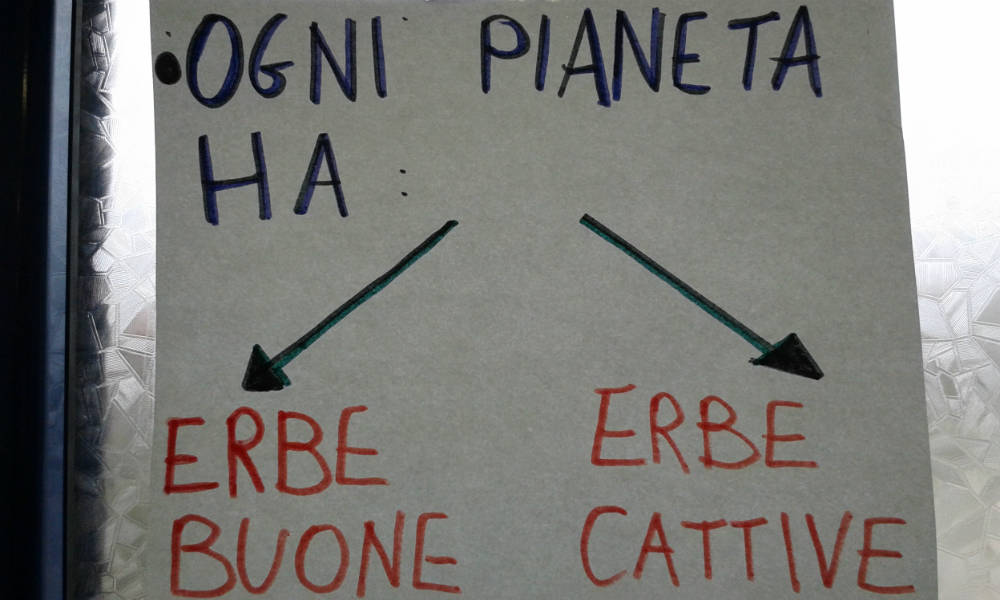 •OGNI PIANETA
HA :
ERBE
BUONE
ERBE
CATTIVE